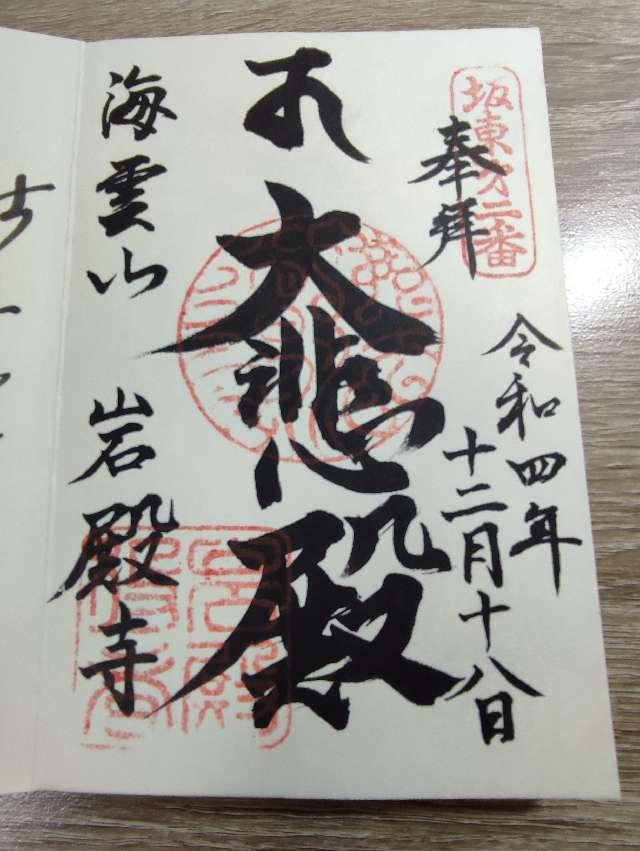 坂東第二番
奉拜
令和四年
十二月十八日
大悲殿
海雲山
岩殿寺